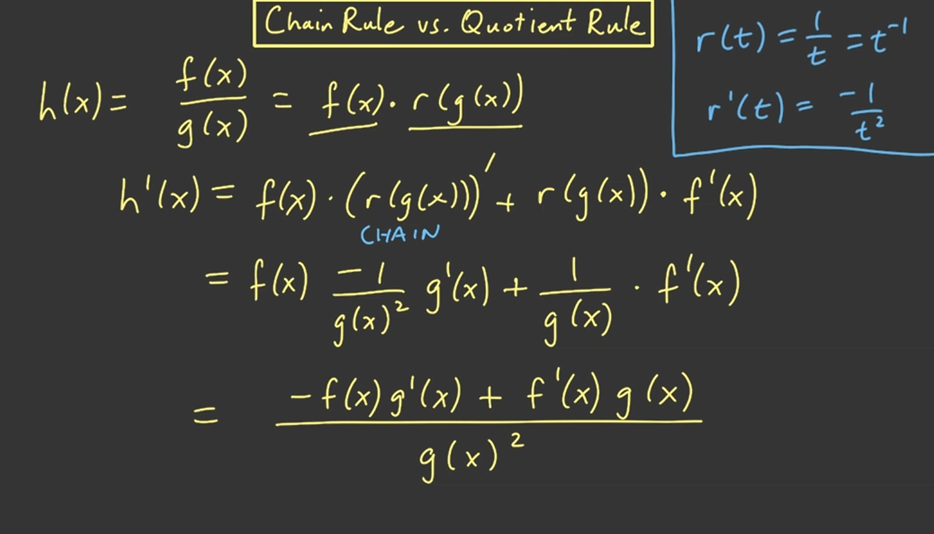 Chain Rule vs. Quotient Rule
r(t) = 1/t = t⁻¹
r'(t) = -1/t²
h(x) = f(x)/g(x) = f(x) · r(g(x))
h'(x) = f(x) · (r(g(x)))' + r(g(x)) · f'(x)
CHAIN
= f(x) -1/g(x)² g'(x) + 1/g(x) · f'(x)
= -f(x)g'(x) + f'(x)g(x) / g(x)²